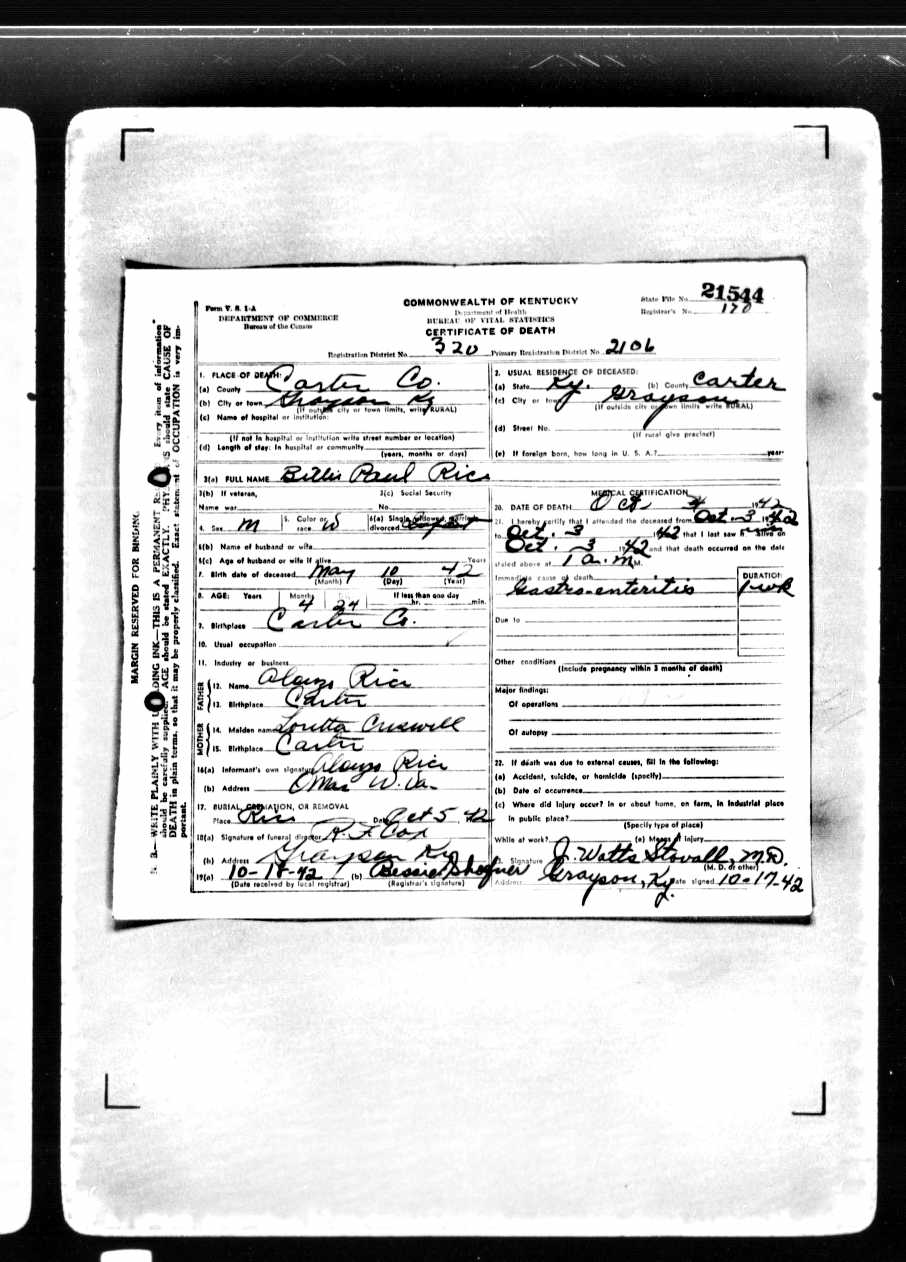 Form V. S. 1-A
DEPARTMENT OF COMMERCE
Bureau of the Census
COMMONWEALTH OF KENTUCKY
Department of Health
BUREAU OF VITAL STATISTICS
CERTIFICATE OF DEATH
State File No. 21544
Registrar's No. 170
Registration District No. 320 Primary Registration District No. 2106
1. PLACE OF DEATH:
(a) County Carter Co.
(b) City or town Grayson Ky
(If outside city or town limits, write RURAL)
(c) Name of hospital or institution:
(If not in hospital or institution write street number or location)
(d) Length of stay: In hospital or community
(years, months or days)
2. USUAL RESIDENCE OF DECEASED:
(a) State Ky. (b) County Carter
(c) City or town Grayson
(If outside city or town limits write RURAL)
(d) Street No.
(If rural give precinct)
(e) If foreign born, how long in U. S. A.? years
3(a) FULL NAME Billie Paul Rice
3(b) If veteran, 3(c) Social Security
Name war No.
4. Sex M 5. Color or race W 6(a) Single, widowed, married, divorced
6(b) Name of husband or wife
6(c) Age of husband or wife if alive Years
7. Birth date of deceased May 10 42
(Month) (Day) (Year)
8. AGE: Years Months Days If less than one day
4 24 hr. min.
9. Birthplace Carter Co.
10. Usual occupation
11. Industry or business
FATHER
12. Name Alonzo Rice
13. Birthplace Carter
MOTHER
14. Maiden name Loretta Criswell
15. Birthplace Carter
16(a) Informant's own signature Alonzo Rice
(b) Address Omar W. Va.
17. BURIAL, CREMATION, OR REMOVAL
Place Rice Date Oct 5, 1942
18(a) Signature of funeral director R. F. Cox
(b) Address Grayson Ky
19(a) 10-18-42 (b) Bessie
(Date received by local registrar) (Registrar's signature)
MEDICAL CERTIFICATION
20. DATE OF DEATH Oct. 4 1942
21. I hereby certify that I attended the deceased from Oct. 3 1942
to Oct. 3 1942 that I last saw alive on
Oct. 3 1942 and that death occurred on the date
stated above at 1 a.m. M.
Immediate cause of death DURATION
Gastro-enteritis 1 wk
Due to
Other conditions
(Include pregnancy within 3 months of death)
Major findings:
Of operations
Of autopsy
22. If death was due to external causes, fill in the following:
(a) Accident, suicide, or homicide (specify)
(b) Date of occurrence
(c) Where did injury occur? In or about home, on farm, in industrial place
in public place?
(Specify type of place)
While at work? (e) Means of injury
Signature J. Watts Stovall, M.D.
(M. D. or other)
Address Grayson, Ky. Date signed 10-17-42
MARGIN RESERVED FOR BINDING.
N. B.—WRITE PLAINLY WITH UNFADING INK—THIS IS A PERMANENT RECORD. Every item of information
should be carefully supplied. AGE should be stated EXACTLY. PHYSICIANS should state CAUSE OF
DEATH in plain terms, so that it may be properly classified. Exact statement of OCCUPATION is very im-
portant.